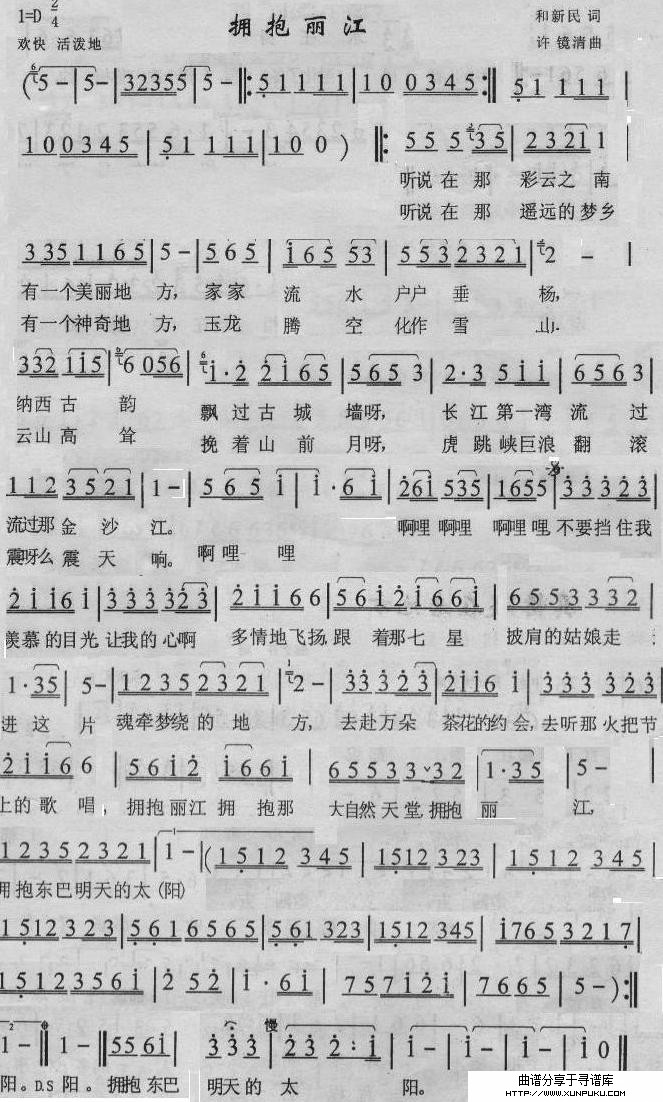 1=D 2/4 拥抱丽江 和新民 词
欢快 活泼地 许镜清曲
(5 - | 5 - | 32355 | 5 - |: 5 1 1 1 1 | 1 0 0 3 4 5 :| 5 1 1 1 1 |
1 0 0 3 4 5 | 5 1 1 1 1 | 1 0 0 ) |: 5 5 5 3 5 | 2 3 2 1 1 |
听说 在 那 彩云之 南
听说 在 那 遥远的 梦乡
3 3 5 1 1 6 5 | 5 - | 5 6 5 | i 6 5 5 3 | 5 5 3 2 3 2 1 | 2 - |
有一个美丽地 方, 家家 流 水 户户 垂 杨,
有一个神奇地 方, 玉龙 腾 空 化作 雪 山.
3 3 2 1 i 5 | 6 0 5 6 | i · 2 | 2 i 6 5 | 5 6 5 3 | 2 · 3 5 i i | 6 5 6 3 |
纳西 古 韵 飘 过 古 城 墙呀, 长 江 第一湾 流 过
云山 高 耸 挽 着 山 前 月呀, 虎 跳 峡巨浪 翻 滚
1 1 2 3 5 2 1 | 1 - | 5 6 5 i | i · 6 i | 2 6 i 5 3 5 | 1 6 5 5 | 3 3 3 2 3 |
流过那 金 沙 江。 啊哩 啊哩 啊哩 哩, 不要挡 住我
震呀么 震 天 响。 啊 哩 哩
2 i i 6 i | 3 3 3 3 2 3 | 2 i i 6 6 | 5 6 i 2 i 6 6 i | 6 5 5 3 3 3 2 |
羡慕 的目光, 让我的 心啊 多情地 飞扬, 跟 着那 七 星 披肩的 姑娘 走
1 · 3 5 | 5 - | 1 2 3 5 2 3 2 1 | 2 - | 3 3 3 2 3 | 2 i i 6 i | 3 3 3 3 2 3 |
进 这 片 魂牵梦绕 的 地 方, 去赴万朵 茶花的约 会, 去听那 火把节
2 i i 6 6 | 5 6 i 2 | i 6 6 i | 6 5 5 3 3 3 2 | 1 · 3 5 | 5 - |
上的 歌 唱, 拥抱 丽江 拥 抱那 大自然 天堂, 拥抱 丽 江,
1 2 3 5 2 3 2 1 | 1 - | ( 1 5 1 2 3 4 5 | 1 5 1 2 3 2 3 | 1 5 1 2 3 4 5 |
拥抱东巴明天的太 (阳)
1 5 1 2 3 2 3 | 5 6 1 6 5 6 5 | 5 6 1 3 2 3 | 1 5 1 2 3 4 5 | i 7 6 5 3 2 1 7 |
1 5 1 2 3 5 6 i | 2 5 2 | i · 6 i | 7 5 7 i 2 i | 7 6 6 5 | 5 - ) :|
1 - | 1 - | 5 5 6 i | 3 3 3 | 慢 2 3 2 · i | i - | i - | i - | i 0 |
阳。D.S 阳。 拥抱 东巴 明天 的 太 阳。
曲谱分享于寻谱库
HTTP://WWW.XUNPUKU.COM